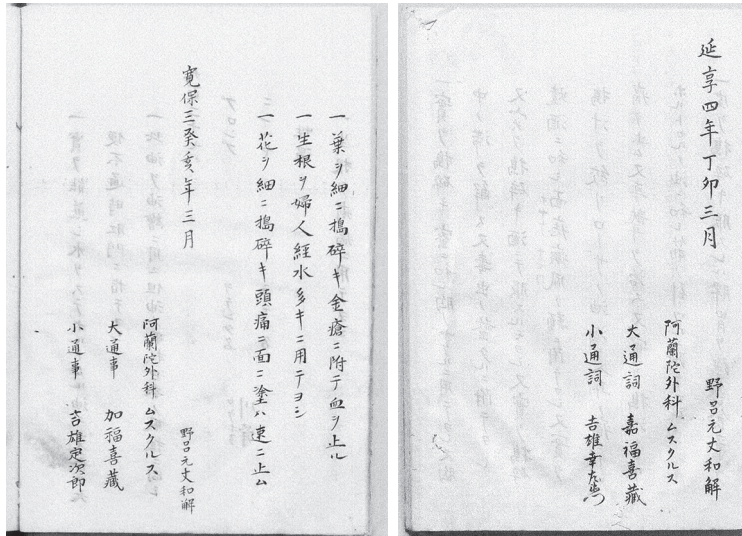 延享四年丁卯三月
野呂元丈和解
阿蘭陀外科 ムスクルス
大通詞 嘉福喜藏
小通詞 吉雄幸左衞門
一 葉ヲ細ニ搗碎キ金瘡ニ附テ血ヲ止ル
一 生根ヲ婦人經水多キニ用テヨシ
一 花ヲ細ニ搗碎キ頭痛ニ面ニ塗ハ速ニ止ム
寛保三癸亥年三月
野呂元丈和解
阿蘭陀外科 ムスクルス
大通事 加福喜藏
小通事 吉雄定次郎